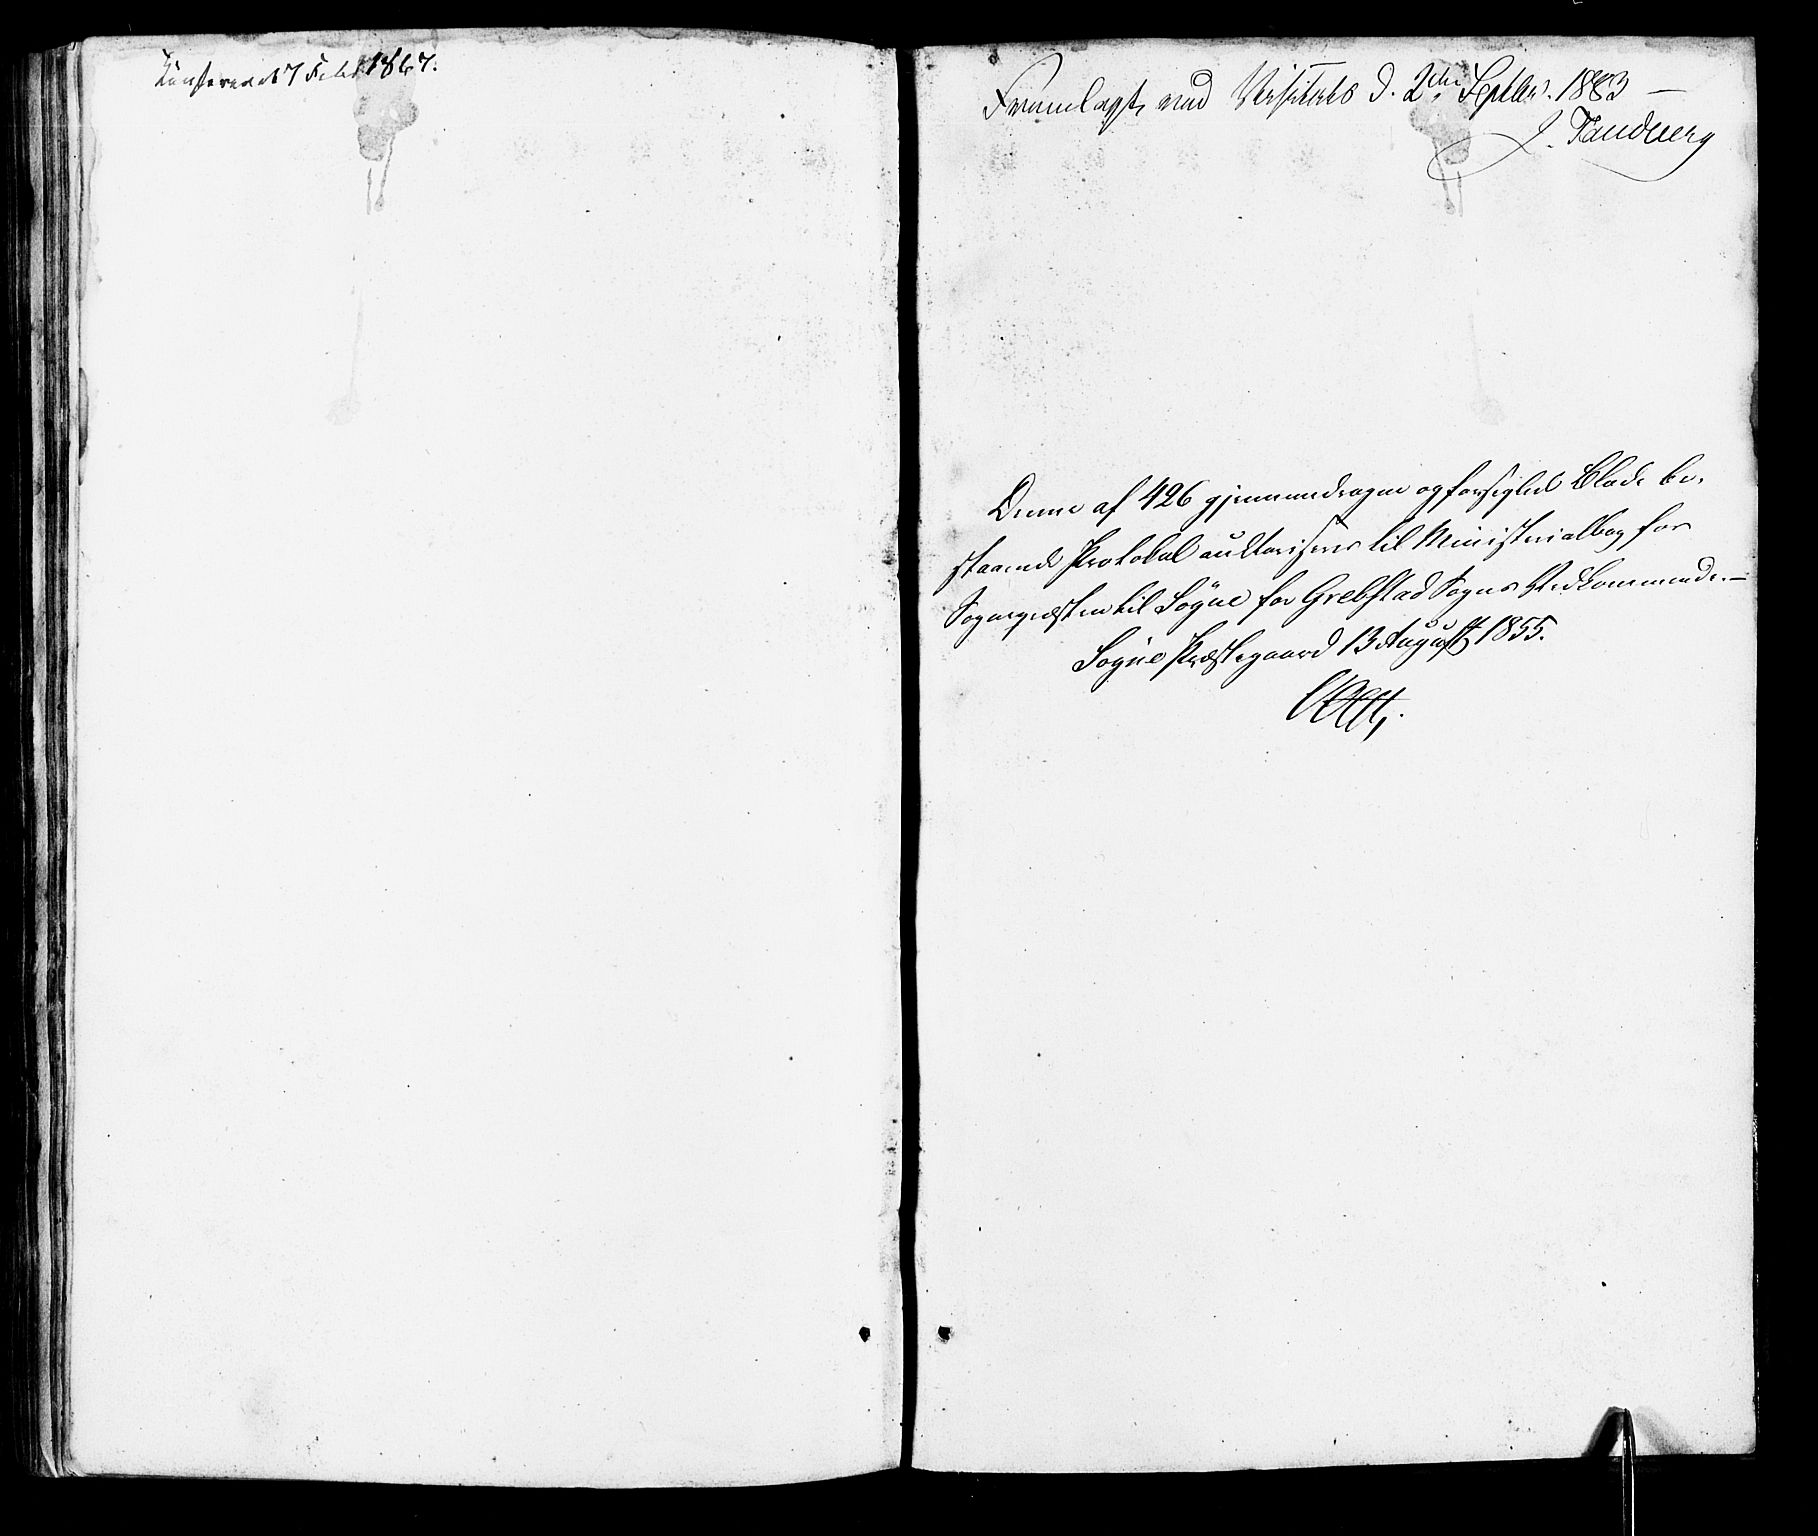 Konfereret 7 Febr 1867.
Fremlagt ved Visitats d. 2den Septbr. 1883 —
J. Tandberg
Denne af 426 gjennemdragne og forseglede Blade be-
staaende Protokol authoriseres til Ministerialbog for
Sognepresten til Søgne for Grebstad Sogns Vedkommende. —
Søgne Præstegaard 13 August 1855.